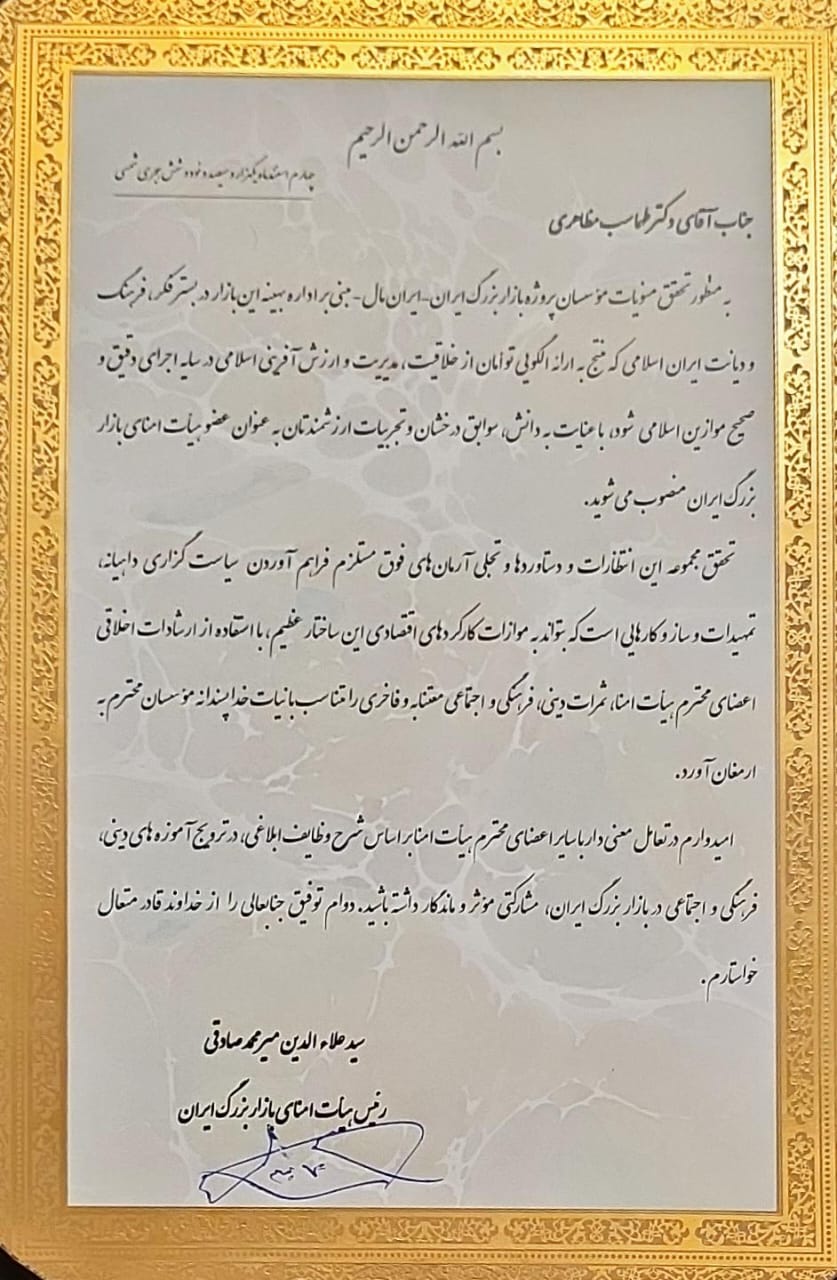 بسم الله الرحمن الرحیم
چهارم اسفند ماه یکهزار و سیصد و نود و شش هجری شمسی
جناب آقای دکتر طهماسب مظاهری
به منظور تحقق منویات مؤسسان پروژه بازار بزرگ ایران-ایران مال- مبنی بر اداره بهینه این بازار در بستر فکر، فرهنگ
و دیانت ایران اسلامی که منتج به ارائه الگویی توأمان از خلاقیت، مدیریت و ارزش آفرینی اسلامی در سایه اجرای دقیق و
صحیح موازین اسلامی شود، با عنایت به دانش، سوابق درخشان و تجربیات ارزشمندتان به عنوان عضو هیأت امنای بازار
بزرگ ایران منصوب می شوید.
تحقق مجموعه این انتظارات و دستاوردها و تجلی آرمان های فوق مستلزم فراهم آوردن سیاست گزاری داهیانه،
تمهیدات و ساز و کارهایی است که بتواند به موازات کارکردهای اقتصادی این ساختار عظیم، با استفاده از ارشادات اخلاقی
اعضای محترم هیأت امنا، ثمرات دینی، فرهنگی و اجتماعی معتنابه و فاخری را متناسب با نیات خداپسندانه مؤسسان محترم به
ارمغان آورد.
امیدوارم در تعامل معنی دار با سایر اعضای محترم هیأت امنا بر اساس شرح وظایف ابلاغی، در ترویج آموزه های دینی،
فرهنگی و اجتماعی در بازار بزرگ ایران، مشارکتی مؤثر و ماندگار داشته باشید. دوام توفیق جنابعالی را از خداوند قادر متعال
خواستارم.
سید علاء الدین میرمحمد صادقی
رئیس هیأت امنای بازار بزرگ ایران